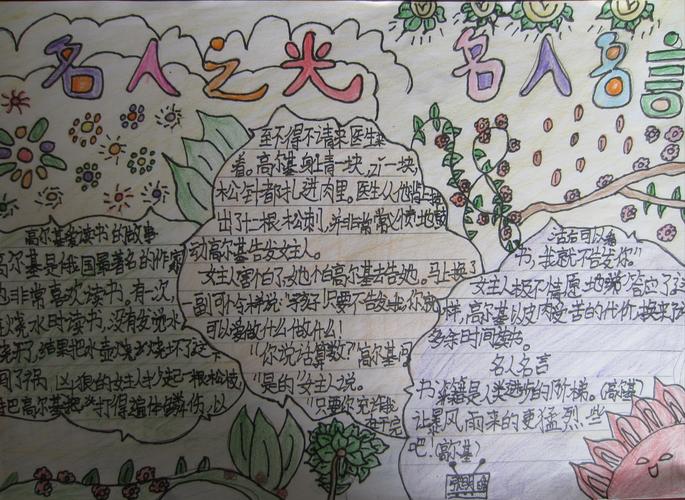 名人之光
名人名言
高尔基爱读书的故事
高尔基是俄国最著名的作家
也非常喜欢读书。有一次,
烧水时读书,没有发觉水
烧开,结果把水壶烧坏了
闯了祸,凶狠的女主人抄起一根松枝
把高尔基打得遍体鳞伤,以
至不得不请来医生
看。高尔基身上青一块,一块,
松针都扎进肉里。医生从他背上
出了十二根松刺,并非常愤慨地鼓
动高尔基告发女主人。
女主人害怕了,她怕高尔基去告她。马上换了
一副可怜样说:"好孩子!只要不告发我,你
可以爱做什么做什么!
"你说话算数?"高尔基问
"是的"女主人说。
"只要你允许我
在干完
活后可以看
书,我就不告发你"
女主人极不情愿地答应了
样,高尔基以皮肉之苦的代价,换来
多余时间读书。
名人名言
书籍是人类进步的阶梯。(高尔基)
让暴风雨来的更猛烈些
吧!(高尔基)